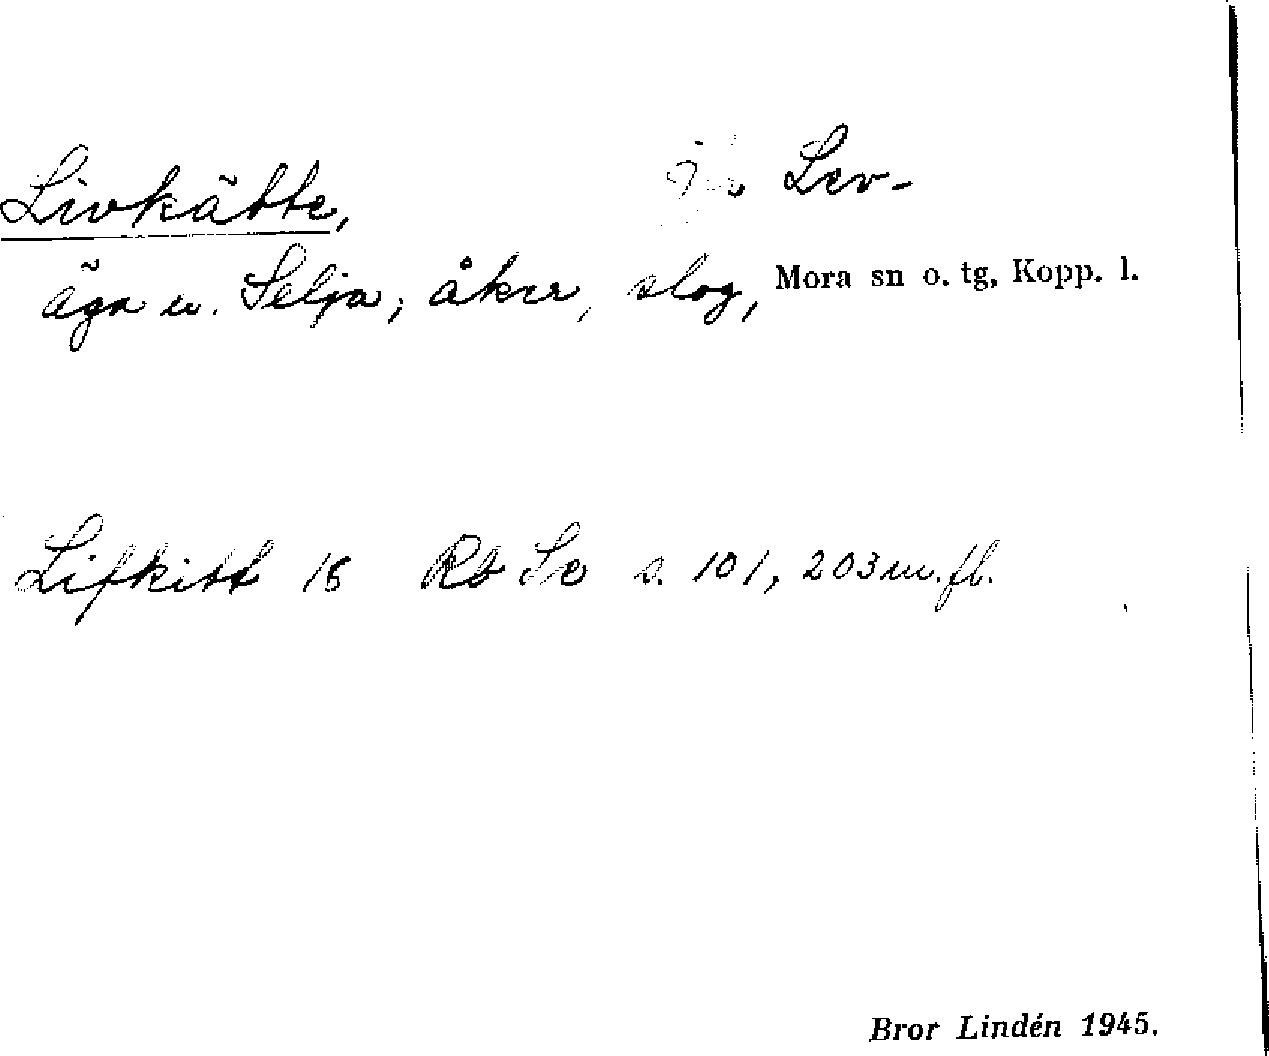 Livkätte, Lev-
äga u. Selja; åker, slog, Mora sn o. tg, Kopp. l.
Lifkitt 18 Rb Se s. 101, 203 m. fl.
Bror Lindén 1945.